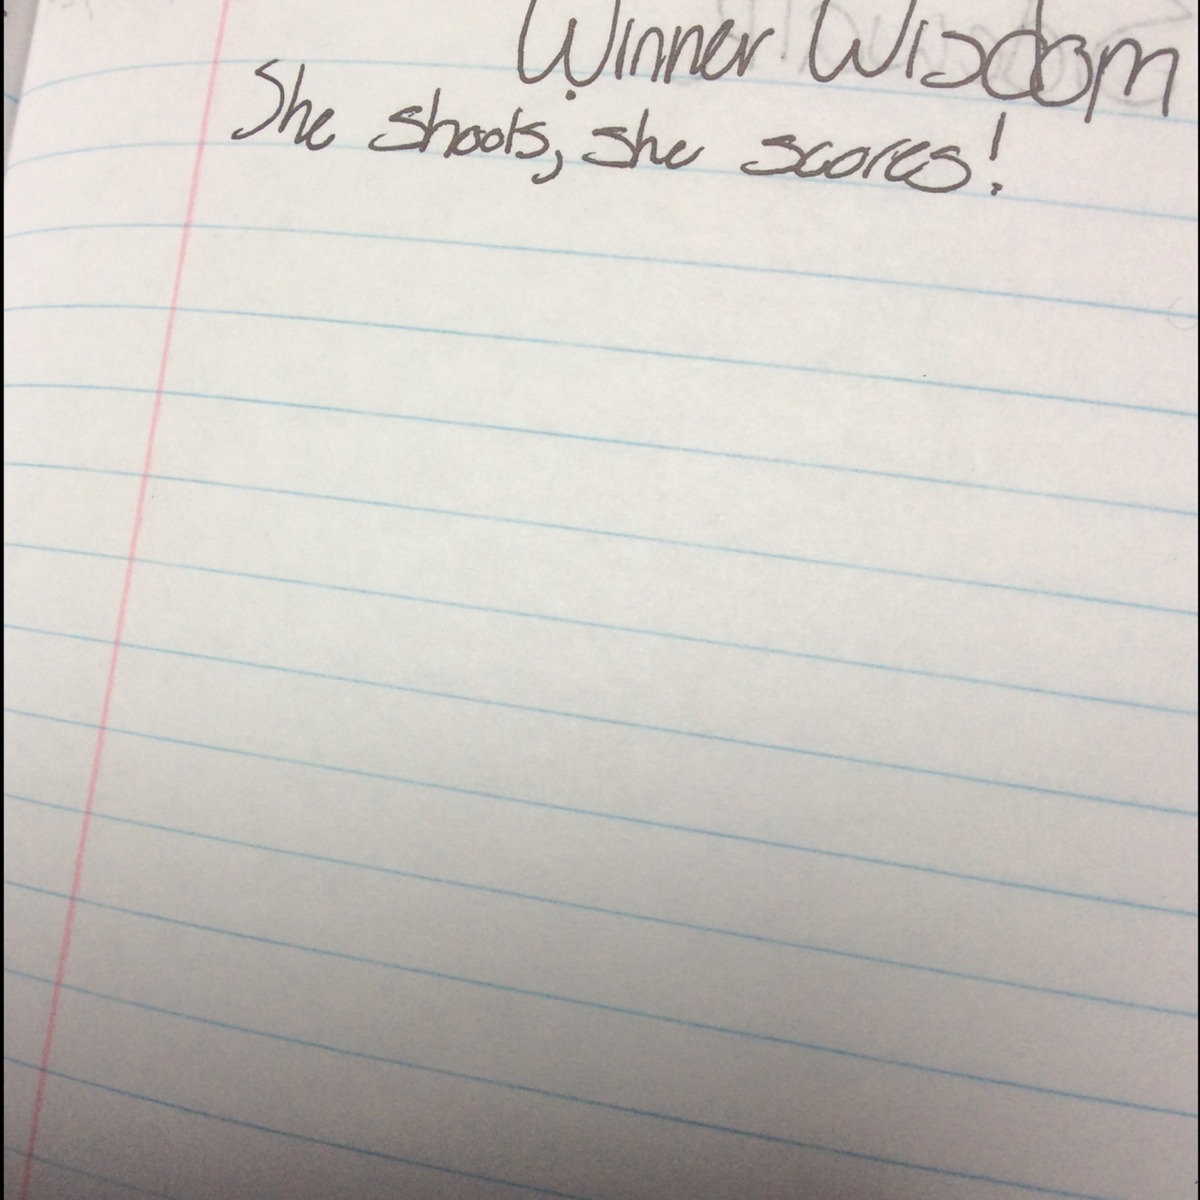 Winner Wisdom
She shoots, she scores!